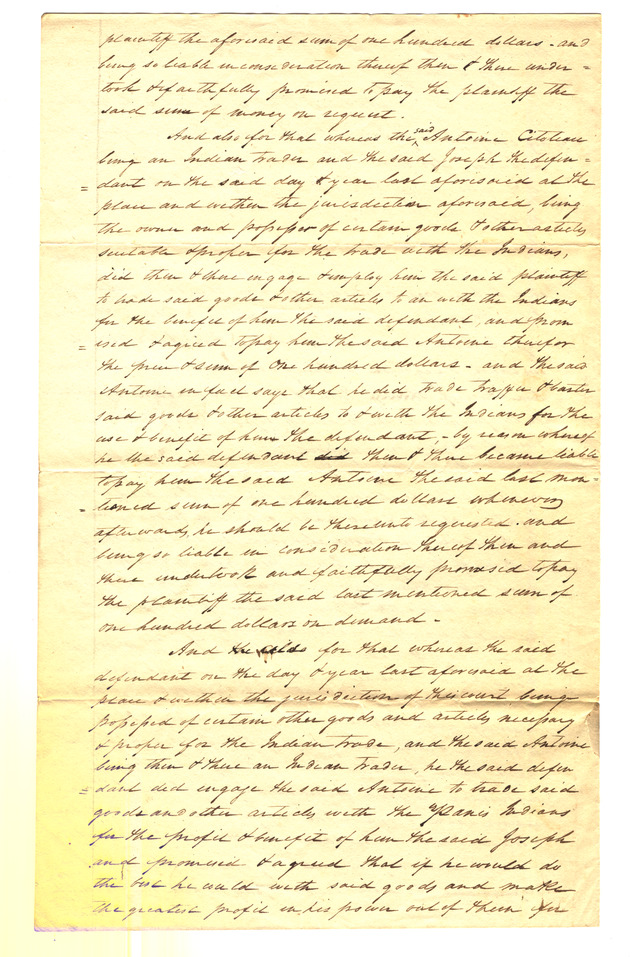 plaintiff the aforesaid sum of one hundred dollars - and
being so liable in consideration thereof then & there under-
took & faithfully promised to pay the plaintiff the
said sum of money on request.
And also for that whereas the said Antoine Citoleau
being an Indian trader and the said Joseph the defen-
dant on the said day & year last aforesaid at the
place and within the jurisdiction aforesaid, being
the owner and possessor of certain goods & other articles
suitable & proper for the trade with the Indians,
did then & there engage & employ him the said plaintiff
to trade said goods & other articles to an with the Indians
for the benefit of him the said defendant, and prom
ised & agreed to pay him the said Antoine therefor
the price & sum of one hundred dollars - and the said
Antoine in fact says that he did trade traffic & barter
said goods & other articles to & with the Indians for the
use & benefit of him the defendant, - by reason whereof
he the said defendant did then & there became liable
to pay him the said Antoine the said last men-
tioned sum of one hundred dollars whenever
afterwards, he should be thereunto requested - and
being so liable in consideration thereof then and
there undertook and faithfully promised to pay
the plaintiff the said last mentioned sum of
one hundred dollars on demand -
And also for that whereas the said
defendant on the day & year last aforesaid at the
place & within the jurisdiction of this court being
possessed of certain other goods and articles necessary
& proper for the Indian trade, and the said Antoine
being then & there an Indian trader, he the said defen
dant did engage the said Antoine to trade said
goods and other articles with the Panis Indians
for the profit & benefit of him the said Joseph
and promised & agreed that if he would do
the best he could with said goods and make
the greatest profit in his power out of them for